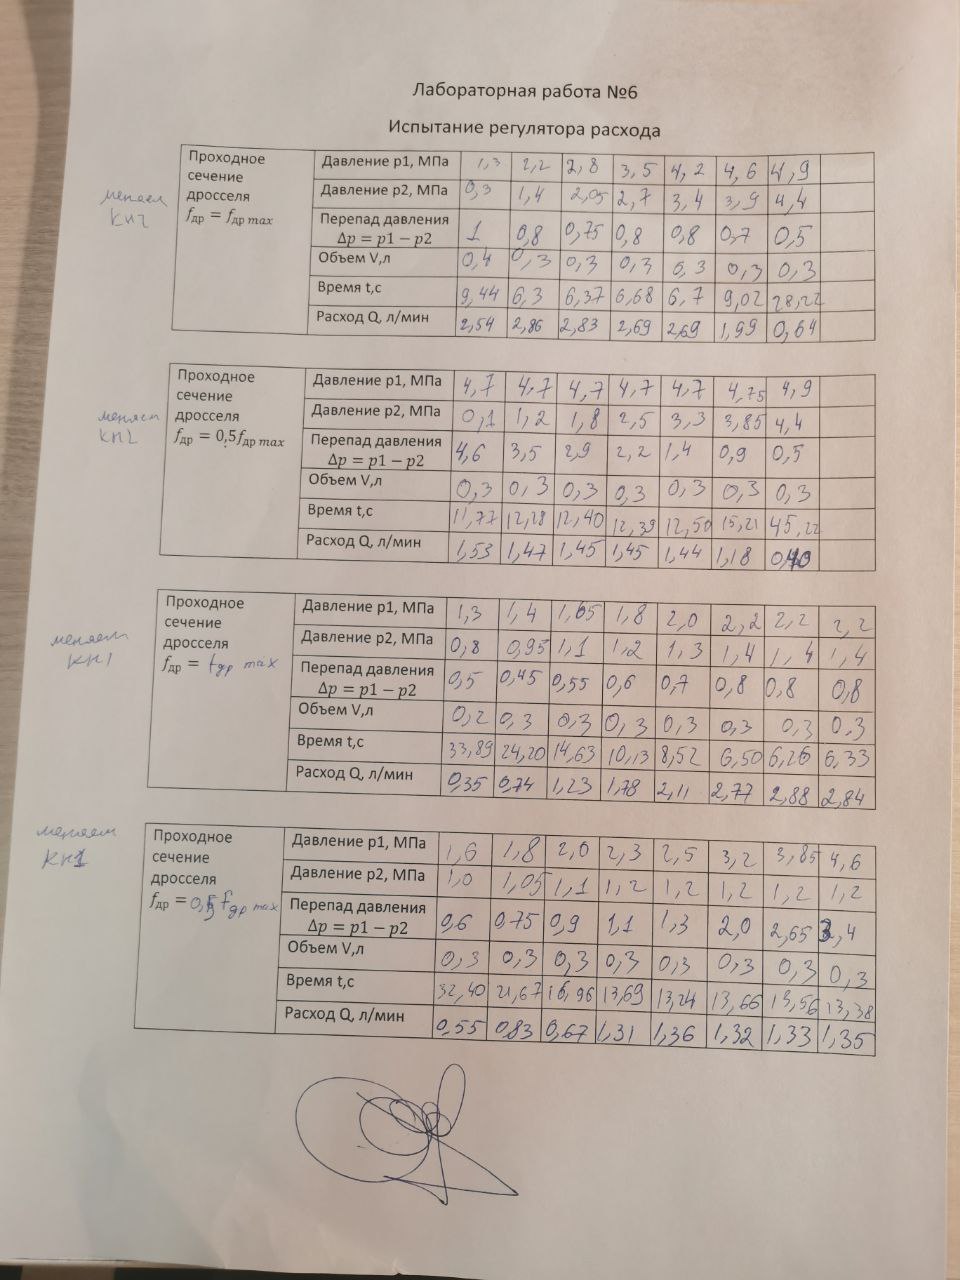 Лабораторная работа №6
Испытание регулятора расхода
меняем
КН2
Проходное
сечение
дросселя
fдр = fдр max
Давление p1, МПа 1,3 2,2 2,8 3,5 4,2 4,6 4,9
Давление p2, МПа 0,3 1,4 2,05 2,7 3,4 3,9 4,4
Перепад давления
Δp = p1 − p2 1 0,8 0,75 0,8 0,8 0,7 0,5
Объем V,л 0,4 0,3 0,3 0,3 0,3 0,3 0,3
Время t,с 9,44 6,3 6,37 6,68 6,7 9,02 28,22
Расход Q, л/мин 2,54 2,86 2,83 2,69 2,69 1,99 0,64
меняем
КН2
Проходное
сечение
дросселя
fдр = 0,5fдр max
Давление p1, МПа 4,7 4,7 4,7 4,7 4,7 4,75 4,9
Давление p2, МПа 0,1 1,2 1,8 2,5 3,3 3,85 4,4
Перепад давления
Δp = p1 − p2 4,6 3,5 2,9 2,2 1,4 0,9 0,5
Объем V,л 0,3 0,3 0,3 0,3 0,3 0,3 0,3
Время t,с 11,77 12,28 12,40 12,39 12,50 15,21 45,22
Расход Q, л/мин 1,53 1,47 1,45 1,45 1,44 1,18 0,40
меняем
КН1
Проходное
сечение
дросселя
fдр = fдр max
Давление p1, МПа 1,3 1,4 1,65 1,8 2,0 2,2 2,2 2,2
Давление p2, МПа 0,8 0,95 1,1 1,2 1,3 1,4 1,4 1,4
Перепад давления
Δp = p1 − p2 0,5 0,45 0,55 0,6 0,7 0,8 0,8 0,8
Объем V,л 0,2 0,3 0,3 0,3 0,3 0,3 0,3 0,3
Время t,с 33,89 24,20 14,63 10,13 8,52 6,50 6,26 6,33
Расход Q, л/мин 0,35 0,74 1,23 1,78 2,11 2,77 2,88 2,84
меняем
КН1
Проходное
сечение
дросселя
fдр = 0,5 fдр max
Давление p1, МПа 1,6 1,8 2,0 2,3 2,5 3,2 3,85 4,6
Давление p2, МПа 1,0 1,05 1,1 1,2 1,2 1,2 1,2 1,2
Перепад давления
Δp = p1 − p2 0,6 0,75 0,9 1,1 1,3 2,0 2,65 3,4
Объем V,л 0,3 0,3 0,3 0,3 0,3 0,3 0,3 0,3
Время t,с 32,40 21,67 16,96 13,69 13,24 13,66 13,56 13,38
Расход Q, л/мин 0,55 0,83 0,67 1,31 1,36 1,32 1,33 1,35